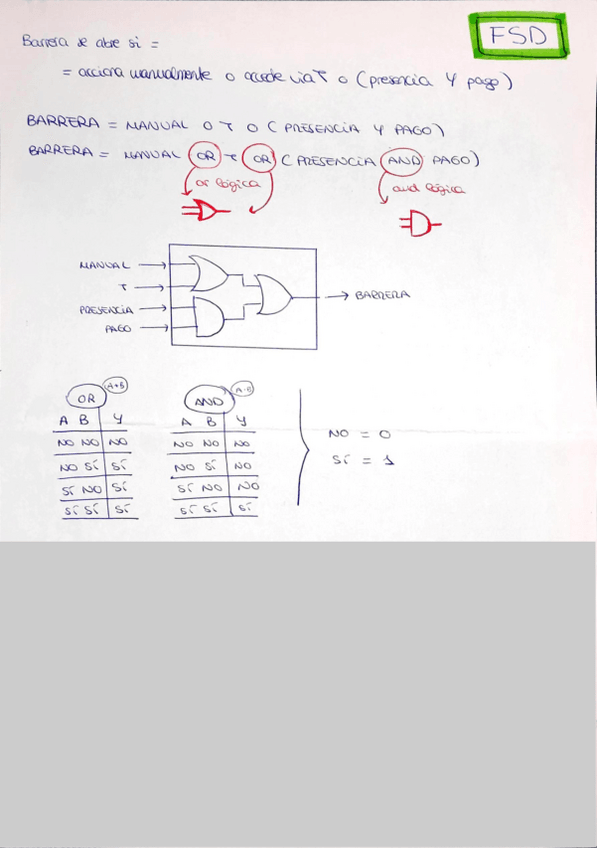 FSD
Barrera se abre si =
= acciona manualmente o accede via T o (presencia y pago)
BARRERA = MANUAL O T O (PRESENCIA Y PAGO)
BARRERA = MANUAL OR T OR (PRESENCIA AND PAGO)
or lógica
and lógica
MANUAL
T
PRESENCIA
PAGO
BARRERA
OR A+B
A B Y
NO NO NO
NO SÍ SÍ
SÍ NO SÍ
SÍ SÍ SÍ
AND A·B
A B Y
NO NO NO
NO SÍ NO
SÍ NO NO
SÍ SÍ SÍ
NO = 0
SÍ = 1